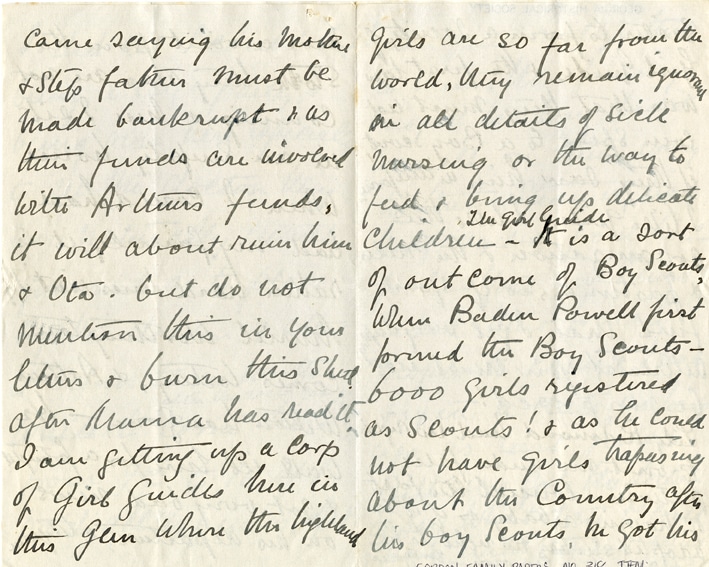 came saying his mother
& Step father must be
made bankrupt & as
their funds are involved
with Arthurs funds,
it will about ruin him
& Ota. but do not
mention this in your
letters & burn this Sheet
after Mama has read it.
I am getting up a corps
of Girl Guides here in
this Glen where the highland
girls are so far from the
world, they remain ignorant
in all details of sick
nursing or the way to
feed & bring up delicate
children – The Girl Guide
It is a sort
of out come of Boy Scouts,
When Baden Powell first
formed the Boy Scouts –
6000 Girls registered
as Scouts! & as he could
not have girls trapesing
about the Country after
his boy Scouts, he got his
GORDON FAMILY PAPERS, NO. 318